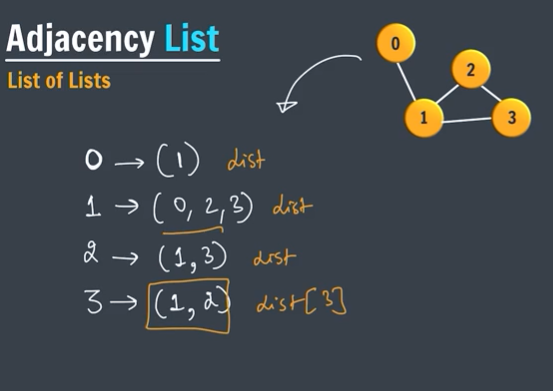 Adjacency List
List of Lists
0
2
1
3
0 → (1) dist
1 → (0, 2, 3) dist
2 → (1, 3) dist
3 → (1, 2) dist[3]